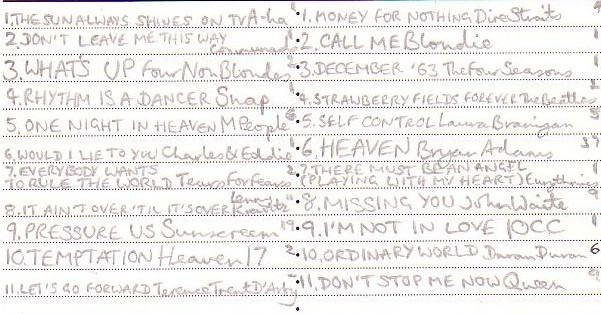 1.THE SUN ALWAYS SHINES ON TV A-ha
2.DON'T LEAVE ME THIS WAY
Communards
3.WHAT'S UP Four Non Blondes
4.RHYTHM IS A DANCER Snap
5.ONE NIGHT IN HEAVEN M People
6.WOULD I LIE TO YOU Charles & Eddie
7.EVERYBODY WANTS
TO RULE THE WORLD Tears For Fears
8.IT AIN'T OVER 'TIL IT'S OVER Lenny Kravitz
9.PRESSURE US Sunscreem 19
10.TEMPTATION Heaven 17 2
11.LET'S GO FORWARD Terence Trent D'Arby
1.MONEY FOR NOTHING Dire Straits 4
2.CALL ME Blondie 1
3.DECEMBER '63 The Four Seasons 1
4.STRAWBERRY FIELDS FOREVER The Beatles 2
5.SELF CONTROL Laura Branigan 5
6.HEAVEN Bryan Adams
7.THERE MUST BE AN ANGEL 1
(PLAYING WITH MY HEART) Eurythmics
8.MISSING YOU John Waite 9
9.I'M NOT IN LOVE 10CC 1
10.ORDINARY WORLD Duran Duran 6
11.DON'T STOP ME NOW Queen